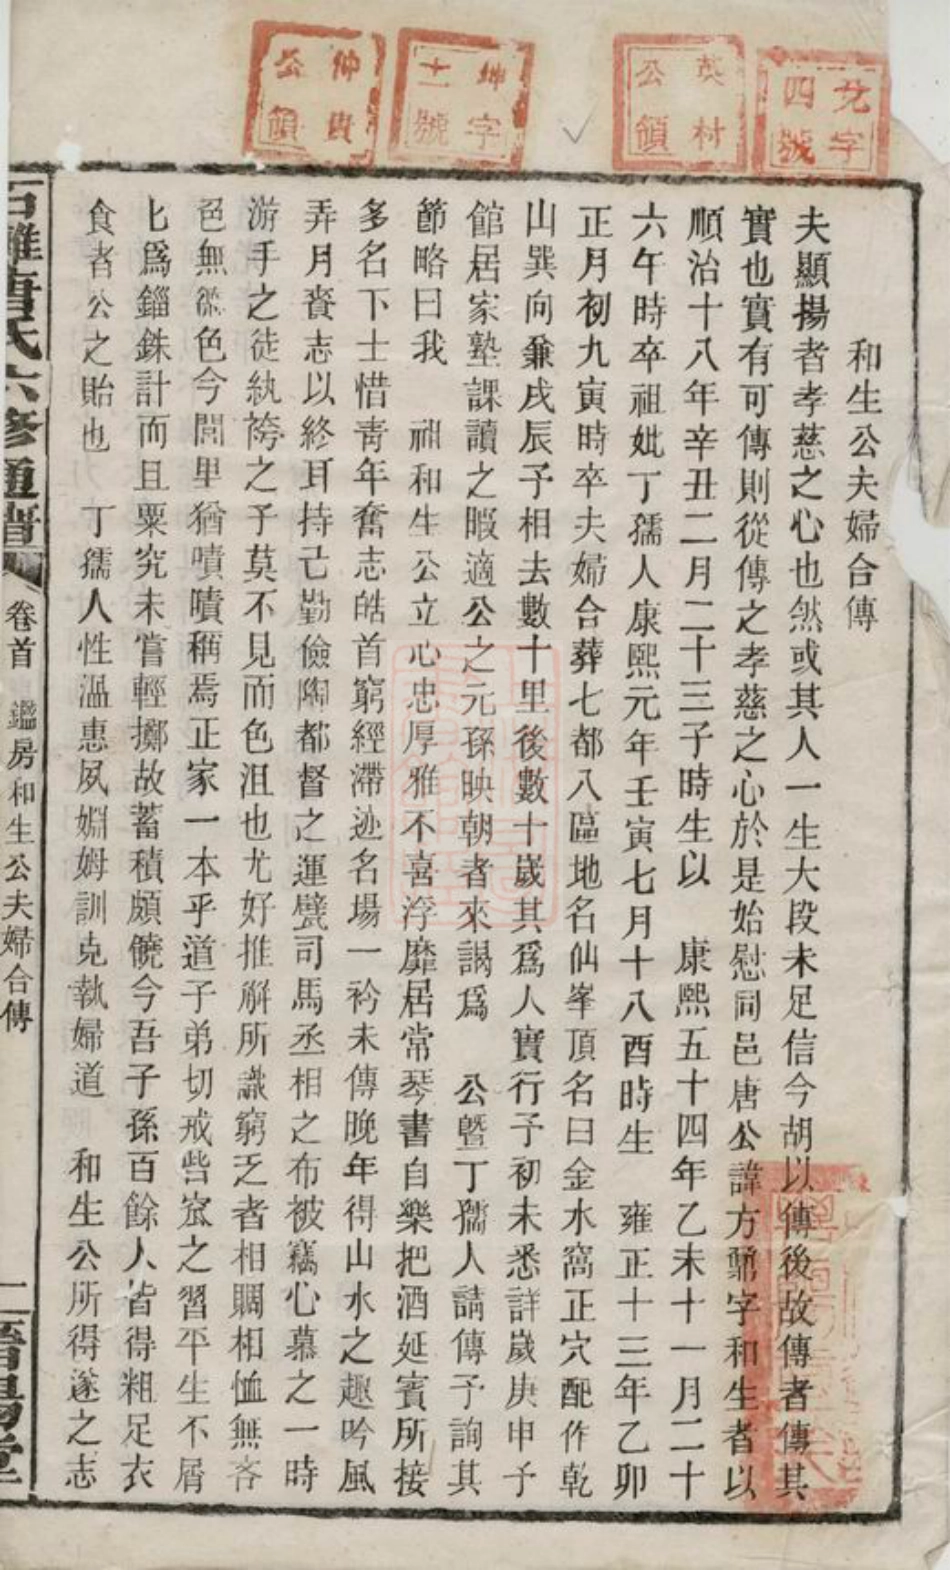 允字四號
英村公領
坤字十一號
仲貴公領
和生公夫婦合傳
夫顯揚者孝慈之心也然或其人一生大段未足信今胡以傳後故傳者傳其
實也實有可傳則從傳之孝慈之心於是始慰同邑唐公諱方鼐字和生者以
順治十八年辛丑二月二十三子時生以 康熙五十四年乙未十一月二十
六午時卒祖妣丁孺人康熙元年壬寅七月十八酉時生 雍正十三年乙卯
正月初九寅時卒夫婦合葬七都八區地名仙峯頂名曰金水窩正穴配作乾
山巽向兼戌辰予相去數十里後數十歲其爲人實行予初未悉詳歲庚申予
館居家塾課讀之暇適公之元孫映朝者來謁爲 公曁丁孺人請傳予詢其
節略曰我 祖和生公立心忠厚雅不喜浮靡居常琴書自樂把酒延賓所接
多名下士惜靑年奮志皓首窮經滯迹名場一衿未傳晚年得山水之趣吟風
弄月賫志以終耳持己勤儉陶都督之運甓司馬丞相之布被竊心慕之一時
游手之徒紈袴之子莫不見而色沮也尤好推解所識窮乏者相賙相恤無吝
色無德色今閭里猶嘖嘖稱焉正家一本乎道子弟切戒呰窳之習平生不屑
匕爲錙銖計而且粟究未嘗輕擲故蓄積頗饒今吾子孫百餘人皆得粗足衣
食者公之貽也 丁孺人性温惠夙嫺姆訓克執婦道 和生公所得遂之志
唐氏六修通譜
卷首
鑑房和生公夫婦合傳
一
晉陽堂